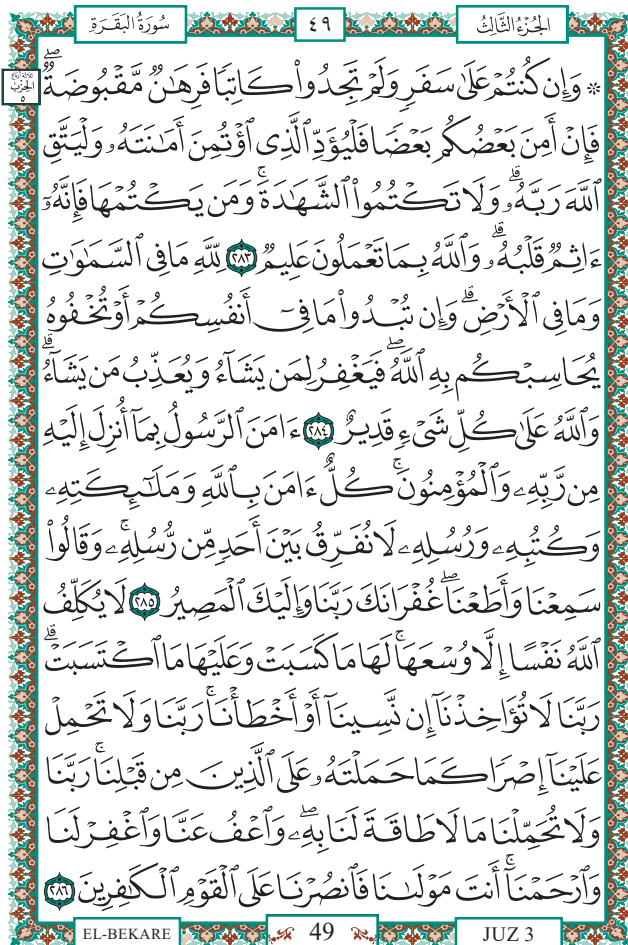 سُورَةُ الْبَقَرَةِ ٤٩ الْجُزْءُ الثَّالِثُ
ثلاثة أرباع
الحزب
٥
۞ وَإِن كُنتُمْ عَلَىٰ سَفَرٍ وَلَمْ تَجِدُوا۟ كَاتِبًا فَرِهَـٰنٌ مَّقْبُوضَةٌ ۖ
فَإِنْ أَمِنَ بَعْضُكُم بَعْضًا فَلْيُؤَدِّ ٱلَّذِى ٱؤْتُمِنَ أَمَـٰنَتَهُۥ وَلْيَتَّقِ
ٱللَّهَ رَبَّهُۥ ۗ وَلَا تَكْتُمُوا۟ ٱلشَّهَـٰدَةَ ۚ وَمَن يَكْتُمْهَا فَإِنَّهُۥٓ
ءَاثِمٌ قَلْبُهُۥ ۗ وَٱللَّهُ بِمَا تَعْمَلُونَ عَلِيمٌ ٢٨٣ لِّلَّهِ مَا فِى ٱلسَّمَـٰوَٰتِ
وَمَا فِى ٱلْأَرْضِ ۗ وَإِن تُبْدُوا۟ مَا فِىٓ أَنفُسِكُمْ أَوْ تُخْفُوهُ
يُحَاسِبْكُم بِهِ ٱللَّهُ ۖ فَيَغْفِرُ لِمَن يَشَآءُ وَيُعَذِّبُ مَن يَشَآءُ ۗ
وَٱللَّهُ عَلَىٰ كُلِّ شَىْءٍ قَدِيرٌ ٢٨٤ ءَامَنَ ٱلرَّسُولُ بِمَآ أُنزِلَ إِلَيْهِ
مِن رَّبِّهِۦ وَٱلْمُؤْمِنُونَ ۚ كُلٌّ ءَامَنَ بِٱللَّهِ وَمَلَـٰٓئِكَتِهِۦ
وَكُتُبِهِۦ وَرُسُلِهِۦ لَا نُفَرِّقُ بَيْنَ أَحَدٍ مِّن رُّسُلِهِۦ ۚ وَقَالُوا۟
سَمِعْنَا وَأَطَعْنَا ۖ غُفْرَانَكَ رَبَّنَا وَإِلَيْكَ ٱلْمَصِيرُ ٢٨٥ لَا يُكَلِّفُ
ٱللَّهُ نَفْسًا إِلَّا وُسْعَهَا ۚ لَهَا مَا كَسَبَتْ وَعَلَيْهَا مَا ٱكْتَسَبَتْ ۗ
رَبَّنَا لَا تُؤَاخِذْنَآ إِن نَّسِينَآ أَوْ أَخْطَأْنَا ۚ رَبَّنَا وَلَا تَحْمِلْ
عَلَيْنَآ إِصْرًا كَمَا حَمَلْتَهُۥ عَلَى ٱلَّذِينَ مِن قَبْلِنَا ۚ رَبَّنَا
وَلَا تُحَمِّلْنَا مَا لَا طَاقَةَ لَنَا بِهِۦ ۖ وَٱعْفُ عَنَّا وَٱغْفِرْ لَنَا
وَٱرْحَمْنَآ ۚ أَنتَ مَوْلَىٰنَا فَٱنصُرْنَا عَلَى ٱلْقَوْمِ ٱلْكَـٰفِرِينَ ٢٨٦
EL-BEKARE 49 JUZ 3